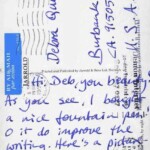 Devra Qu
Burbank
CA. 91505
U.S.A.
BY AIR MAIL
par avion
Hi Deb, you beauty!
As you see, I bought
a nice fountain pen
to it do improve the
writing. Here's a picture